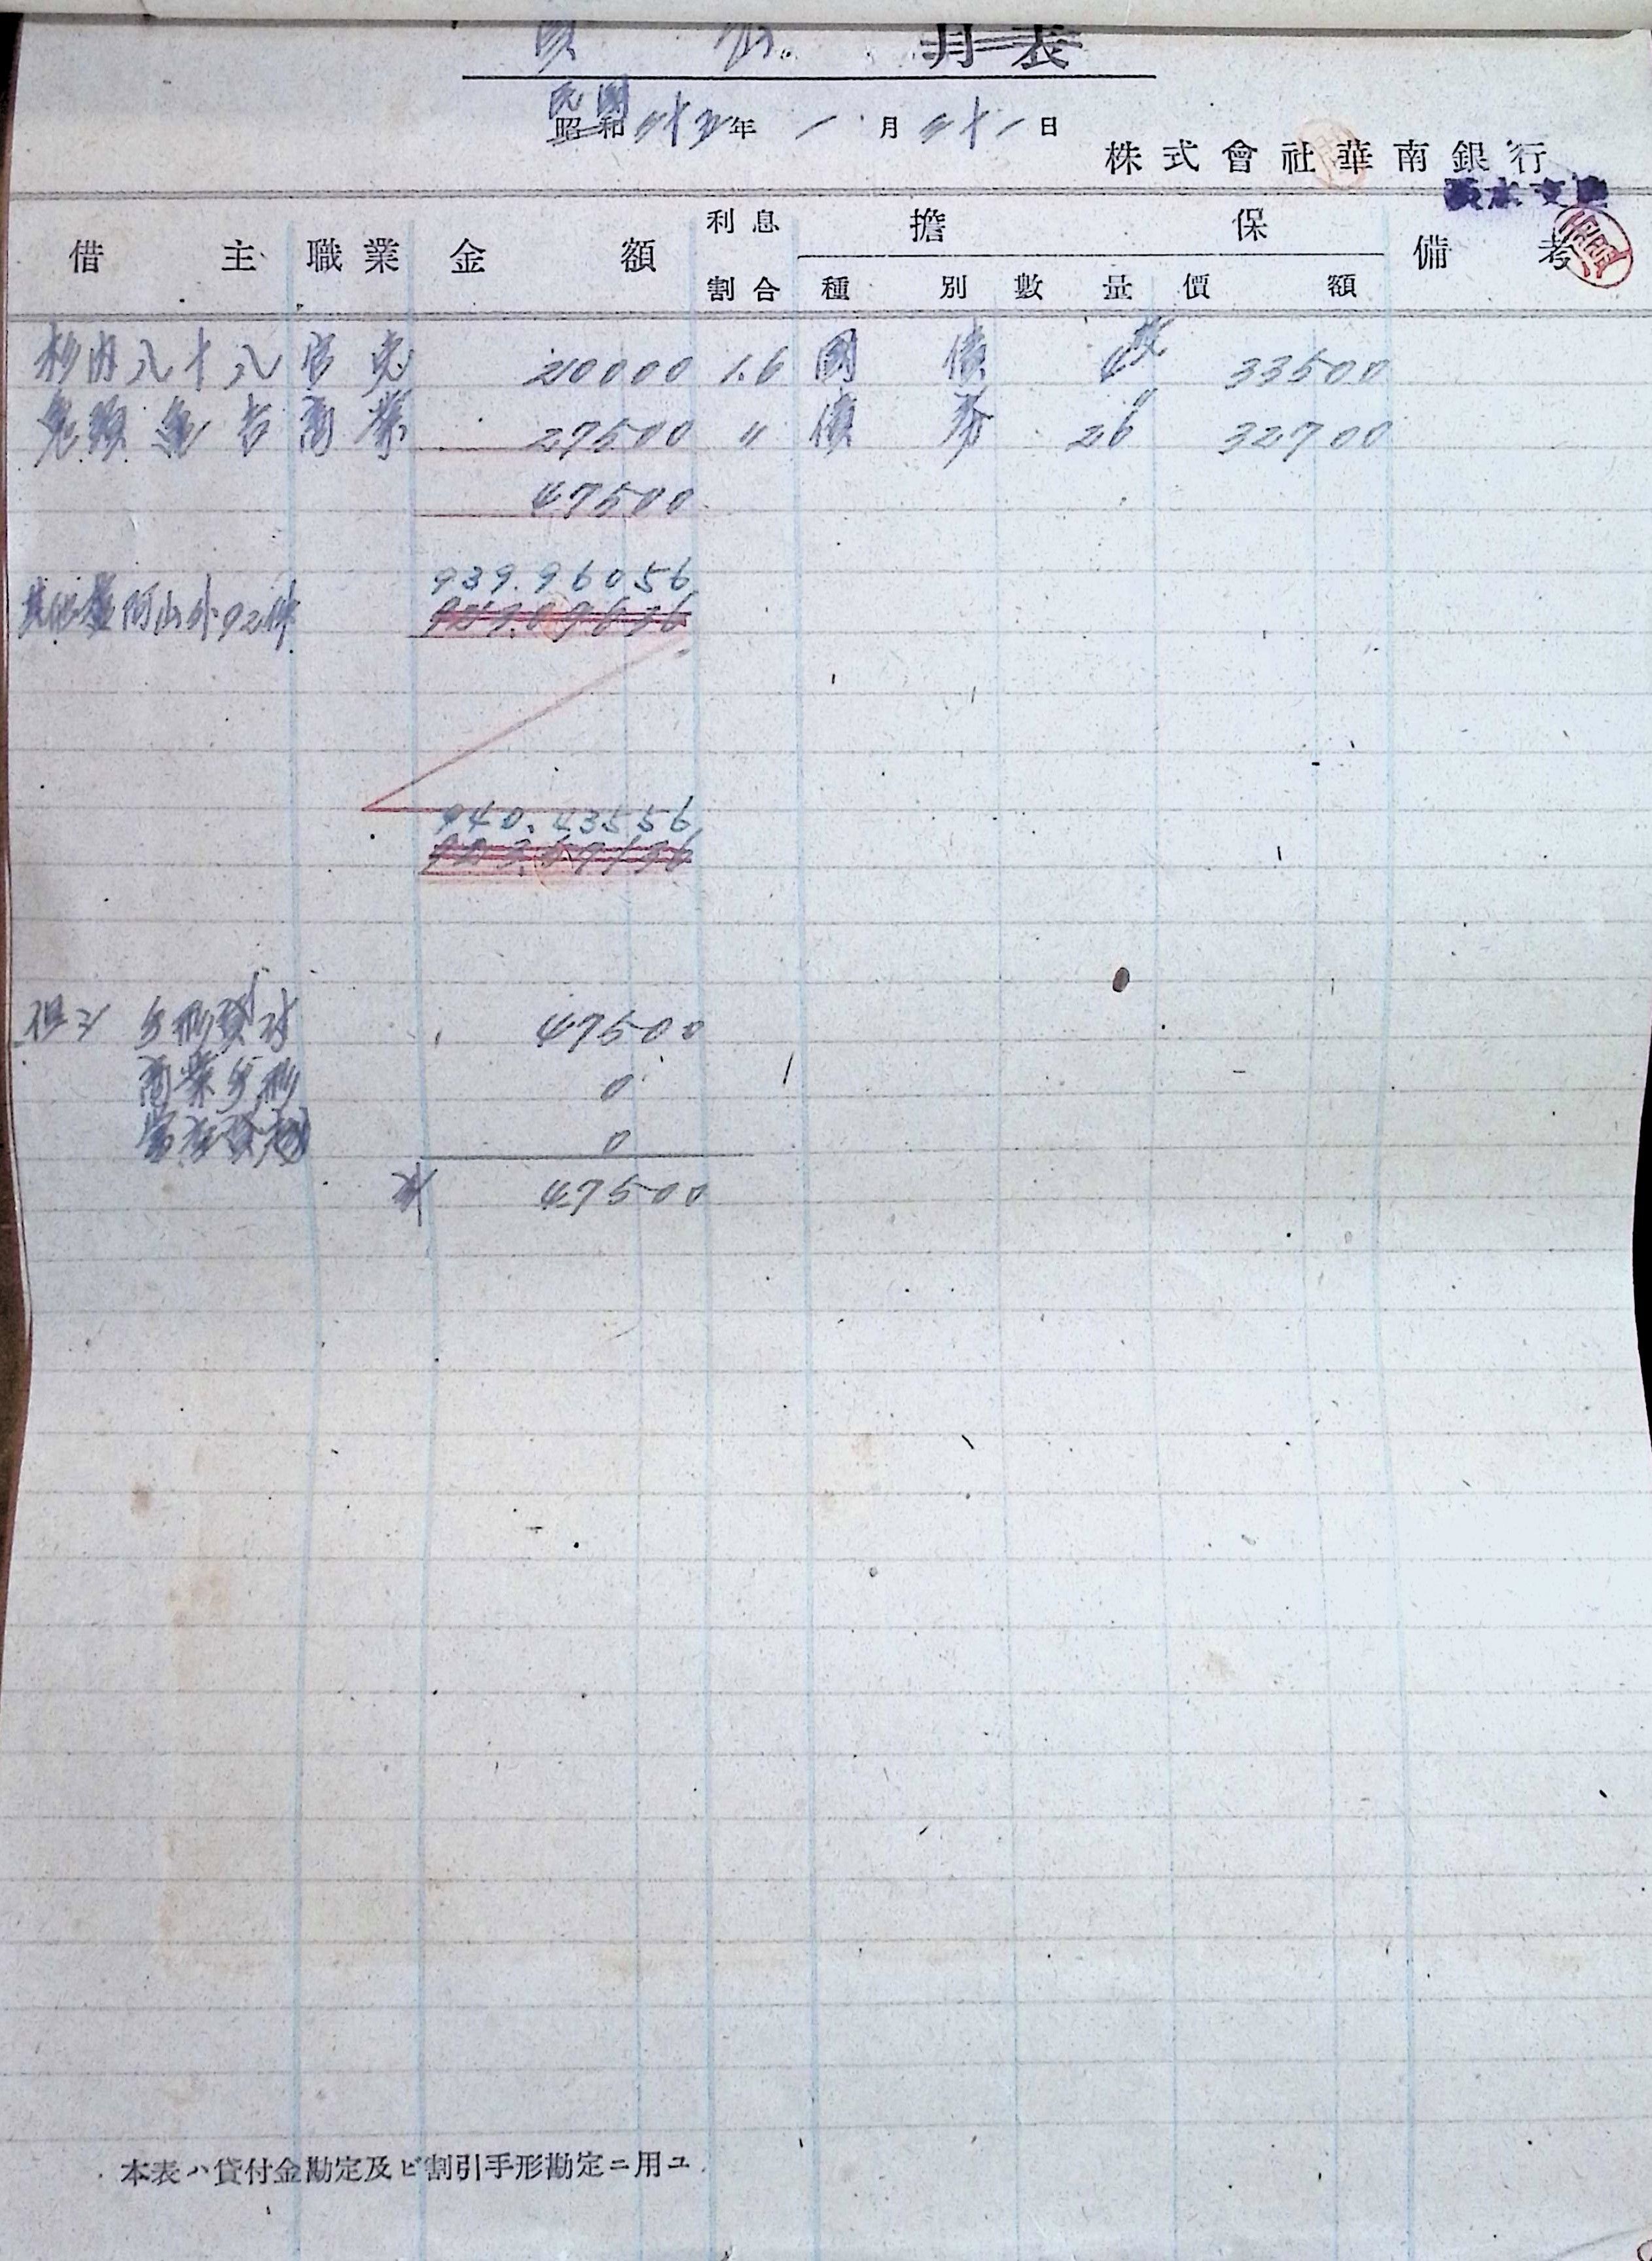 月表
民國
昭和 年 一月 日
株式會社華南銀行
淡水支店
借主 職業 金額 利息割合 擔保 備考
種別 數量 價額
杉内八十八 官吏 20000 1.6 國債 4枚 33500
龜吉 商業 27500 〃 債券 26〃 32700
47500
939.96056
其他 阿山外92件
940.43556
但シ 手形貸付 47500
商業手形 0
0
計 47500
本表ハ貸付金勘定及ビ割引手形勘定ニ用ユ